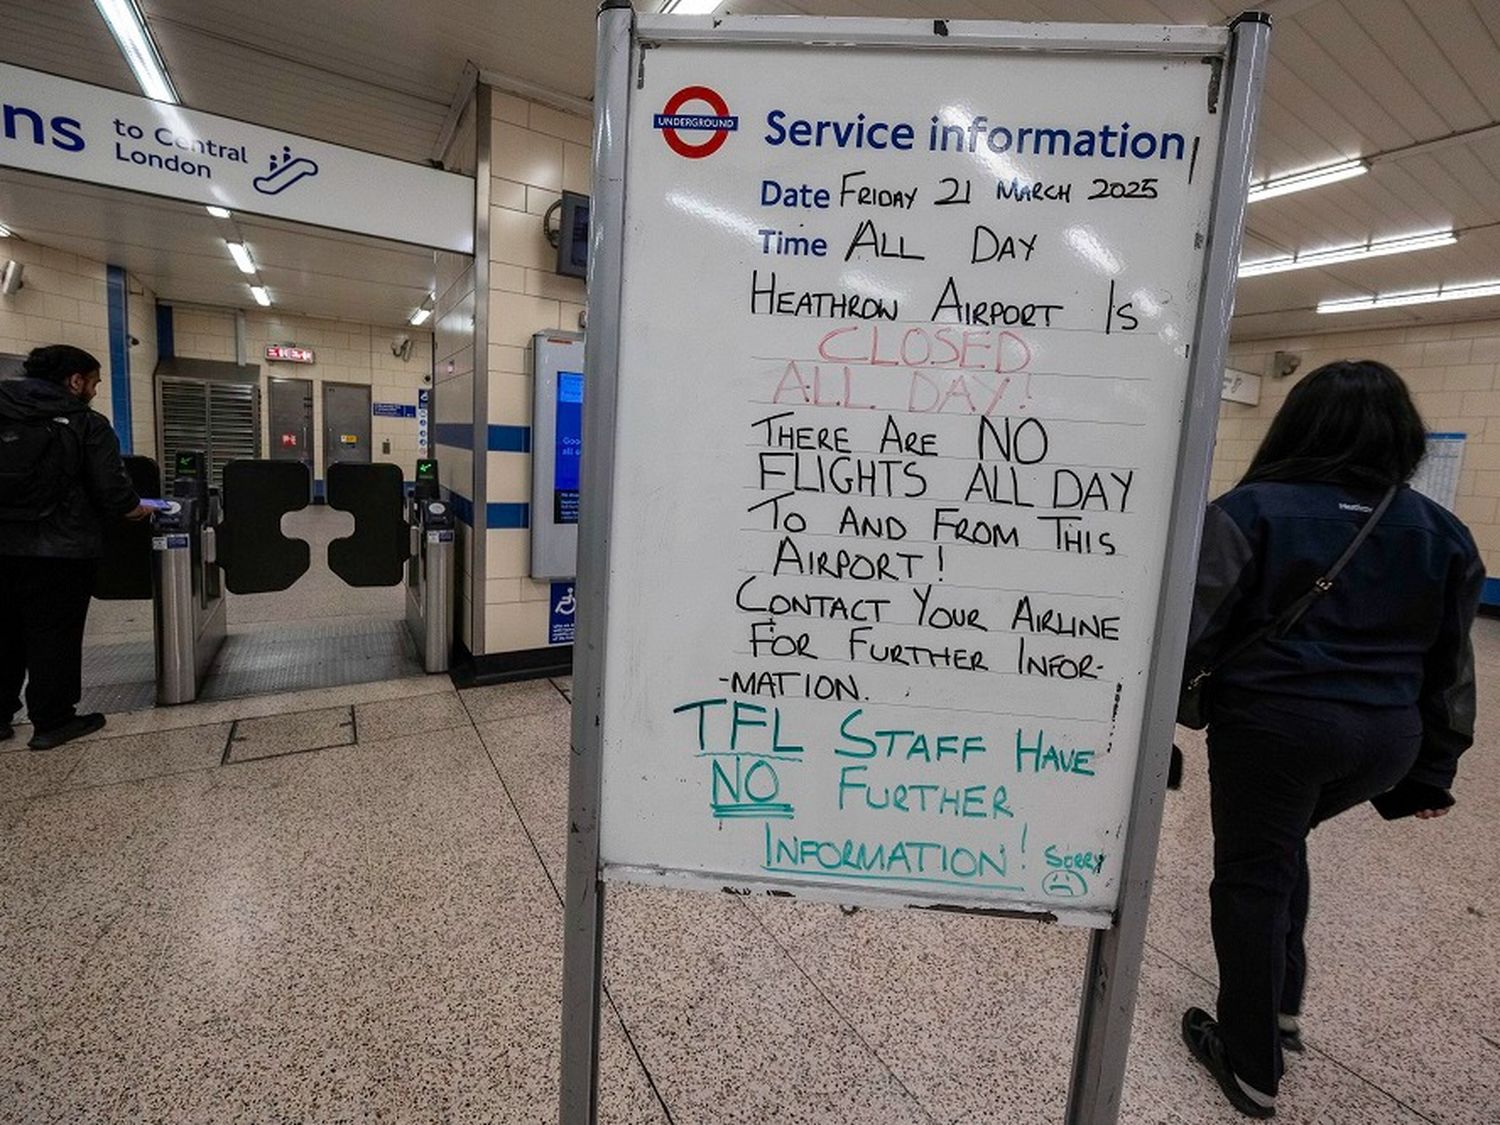 ns
to Central
London
UNDERGROUND
Service information
Date FRIDAY 21 MARCH 2025
Time ALL DAY
HEATHROW AIRPORT IS
CLOSED
ALL DAY!
THERE ARE NO
FLIGHTS ALL DAY
TO AND FROM THIS
AIRPORT!
CONTACT YOUR AIRLINE
FOR FURTHER INFOR-
-MATION.
TFL STAFF HAVE
NO FURTHER
INFORMATION! SORRY
Heathrow